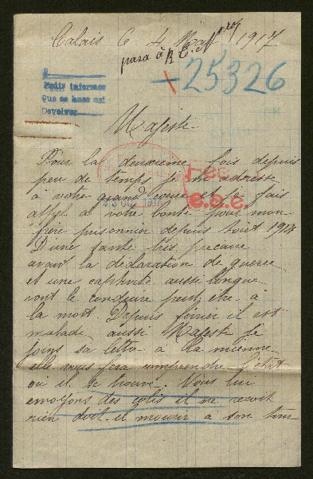 Calais le 4 Mai 1917
pasa á R.C. Nº 209
-25326
Pedir informes
Que se hace así
Devolver
Majesté
Pour la deuxième fois depuis
peu de temps je m'adresse
à votre grand coeur et je fais
appel à votre bonté pour mon
frère prisonnier depuis Août 1914
D'une santé très précaire
avant la déclaration de guerre
et une captivité aussi longue
vont le conduire peut être à
la mort. Depuis février il est
malade aussi Majesté je
joins sa lettre à la mienne
elle vous fera comprendre l'état
où il se trouve. Nous lui
envoyons des colis il ne reçoit
rien doit-il mourir à son tour